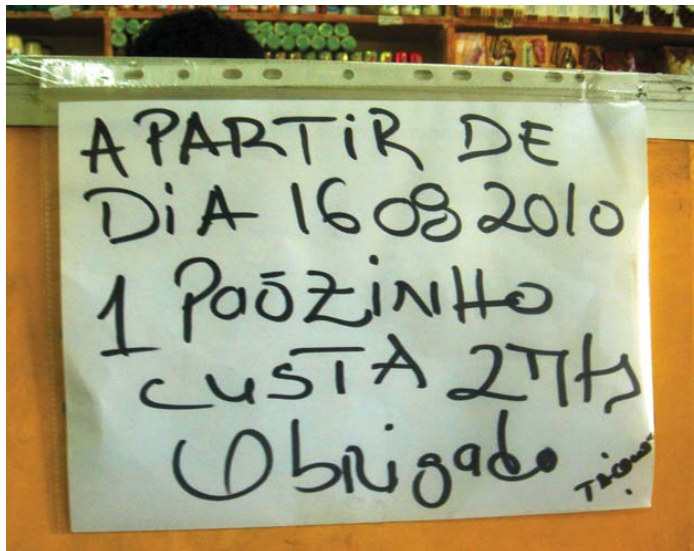 A PARTIR DE
DIA 16 08 2010
1 PaõZINHO
CUSTA 2 MTs
Obrigado